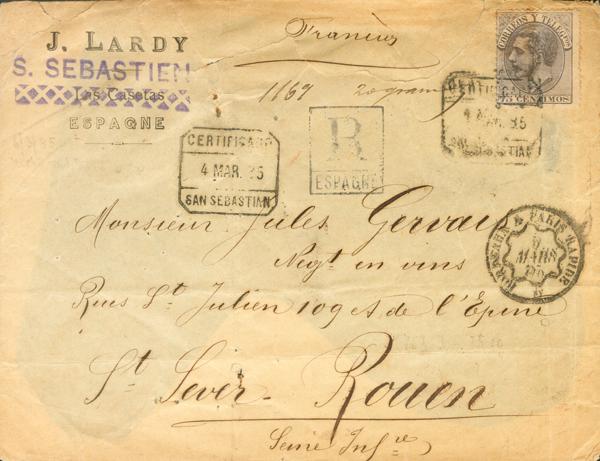 J. LARDY
S. SEBASTIEN
Las Casetas
ESPAGNE
Francia
1167 20 gram
CORREOS Y TELEGFOS
75 CENTIMOS
CERTIFICADO
4 MAR. 85
SAN SEBASTIAN
R
ESPAGNE
CERTIFICADO
4 MAR. 85
SAN SEBASTIAN
Monsieur Jules Gervais
Negt en vins
PARIS RAPIDE
MARS
85
Rues St Julien 109 et de l'Epine
St Sever - Rouen
Seine Infre